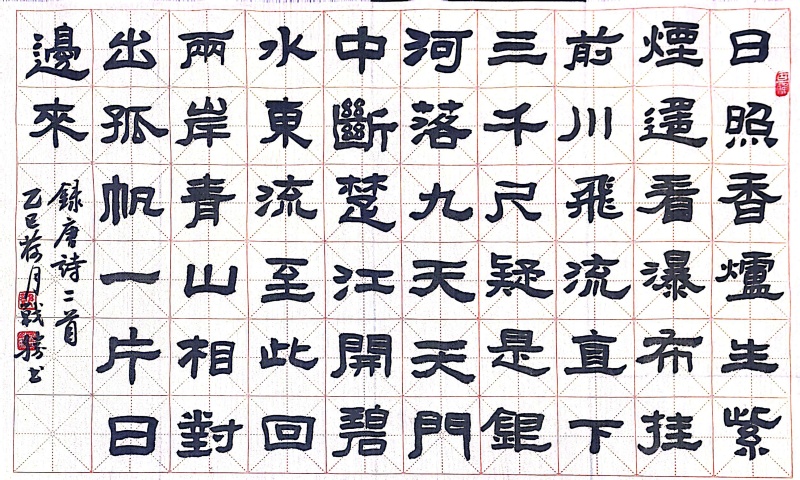 日照香爐生紫
煙遙看瀑布挂
前川飛流直下
三千尺疑是銀
河落九天天門
中斷楚江開碧
水東流至此回
兩岸青山相對
出孤帆一片日
邊來
録唐詩二首
乙巳荷月書